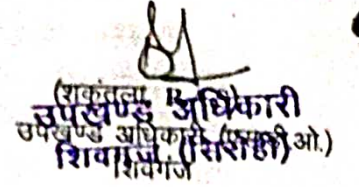 (शकुंतला
उपखण्ड अधिकारी
उपखण्ड अधिकारी ओ.)
शिवगंज (सिरोही)
शिवगंज